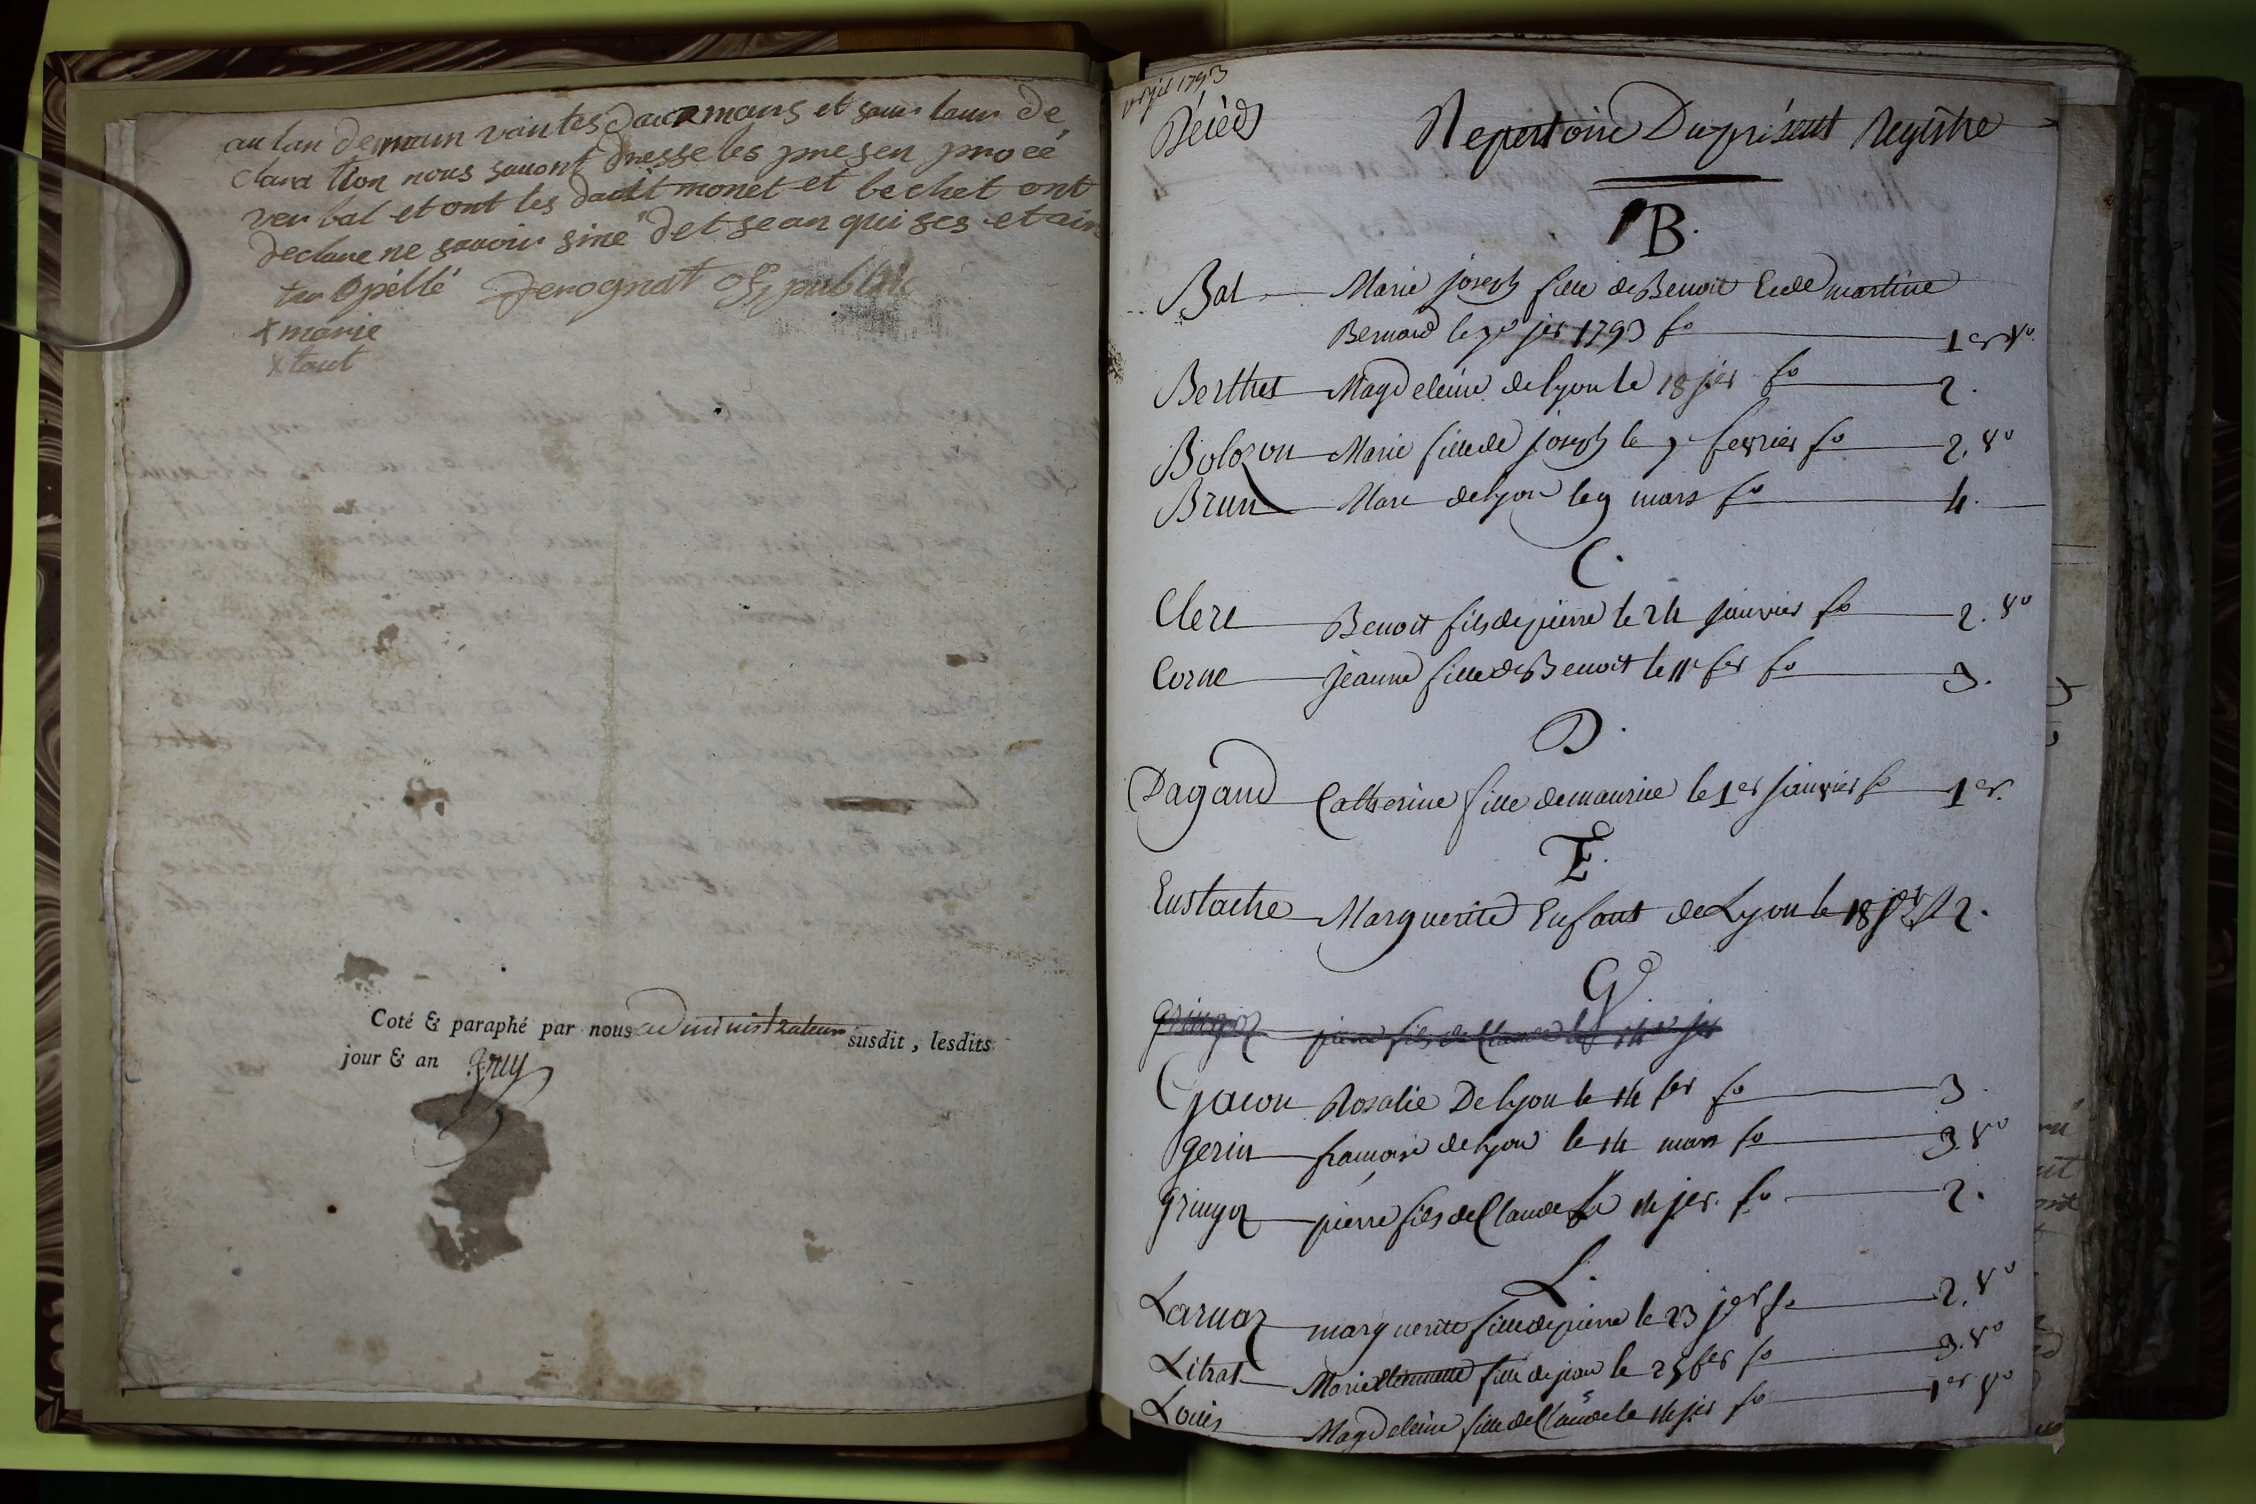 au lan demain vaintes daux mars et saur laur de
clara tion nous savont dresse les presen proce
ver bal et ont les dait monet et bechet ont
declare ne savoir sine det se an qui ses etain
ter apéllé Derognat off publik
x marie
x taut
Coté & paraphé par nous administrateur susdit, lesdits
jour & an
1793
Décèds
Repertoire Du présent Registre
B.
Bal Marie joseph fille de Benoit Et de martine
Bernard le 7e jer 1793 fo 1er vo.
Berthet Magdeleine de lyon le 18 jer fo 2.
Bolozon Marie fille de joseph le 7 fevrier fo 2. vo
Brun Marc de lyon le 9 mars fo 4.
C.
Clerc Benoit fils de pierre le 24 janvier fo 2. vo
Corne jeanne fille de Benoit le 11 fer fo 3.
D.
Dagand Catherine fille de maurice le 1er janvier fo 1er.
E.
Eustache Marguerite Enfant de Lyon le 18 jer fo 2.
G.
Gringoz pierre fils de Claude le 14 jer
Gacon Rosalie De lyon le 14 fer fo 3
gerin francoise de lyon le 14 mars fo 3. vo
Gringoz pierre fils de Claude le 14 jer. fo 2.
L.
Laruaz marguerite fille de pierre le 23 jer fo 2. vo
Litrat Marie Etiennette fille de jean le 25 fer fo 3. vo
Louis Magdeleine fille de Claude le 14 jer fo 1er vo